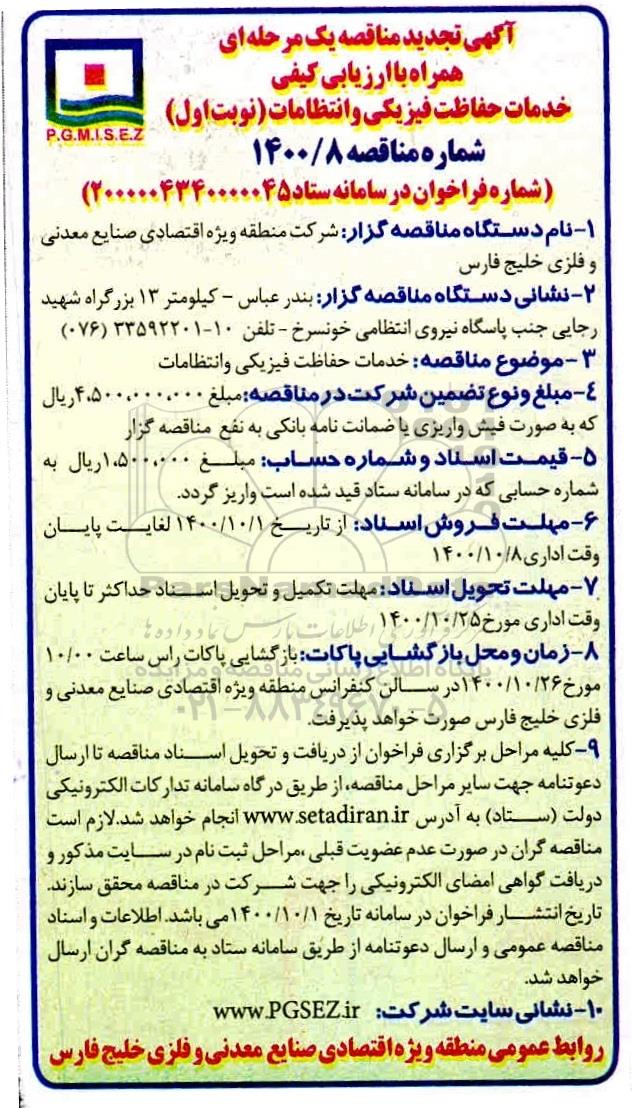 آگهی تجدید مناقصه یک مرحله ای
همراه با ارزیابی کیفی
خدمات حفاظت فیزیکی و انتظامات (نوبت اول)
P.G.M.I.S.E.Z
شماره مناقصه ۱۴۰۰/۸
(شماره فراخوان در سامانه ستاد ۲۰۰۰۰۰۴۳۴۰۰۰۰۰۴۵)
۱-نام دستگاه مناقصه گزار: شرکت منطقه ویژه اقتصادی صنایع معدنی
و فلزی خلیج فارس
۲-نشانی دستگاه مناقصه گزار: بندر عباس – کیلومتر ۱۳ بزرگراه شهید
رجایی جنب پاسگاه نیروی انتظامی خونسرخ - تلفن ۱۰-۳۳۵۹۲۲۰۱ (۰۷۶)
۳ -موضوع مناقصه: خدمات حفاظت فیزیکی وانتظامات
۴-مبلغ و نوع تضمین شرکت در مناقصه: مبلغ ۴،۵۰۰،۰۰۰،۰۰۰ریال
که به صورت فیش واریزی یا ضمانت نامه بانکی به نفع مناقصه گزار
۵- قیمت اسناد و شماره حساب: مبلغ ۱،۵۰۰،۰۰۰ریال به
شماره حسابی که در سامانه ستاد قید شده است واریز گردد.
۶-مهلت فروش اسناد: از تاریخ ۱۴۰۰/۱۰/۱ لغایت پایان
وقت اداری۱۴۰۰/۱۰/۸
۷-مهلت تحویل اسناد: مهلت تکمیل و تحویل اسناد حداکثر تا پایان
وقت اداری مورخ۱۴۰۰/۱۰/۲۵
۸-زمان و محل بازگشایی پاکات: بازگشایی پاکات راس ساعت ۱۰/۰۰
مورخ۱۴۰۰/۱۰/۲۶در سالن کنفرانس منطقه ویژه اقتصادی صنایع معدنی و
فلزی خلیج فارس صورت خواهد پذیرفت.
۹-کلیه مراحل برگزاری فراخوان از دریافت و تحویل اسناد مناقصه تا ارسال
دعوتنامه جهت سایر مراحل مناقصه، از طریق درگاه سامانه تدارکات الکترونیکی
دولت (ستاد) به آدرس www.setadiran.ir انجام خواهد شد.لازم است
مناقصه گران در صورت عدم عضویت قبلی ،مراحل ثبت نام در سایت مذکور و
دریافت گواهی امضای الکترونیکی را جهت شرکت در مناقصه محقق سازند.
تاریخ انتشار فراخوان در سامانه تاریخ ۱۴۰۰/۱۰/۱می باشد. اطلاعات و اسناد
مناقصه عمومی و ارسال دعوتنامه از طریق سامانه ستاد به مناقصه گران ارسال
خواهد شد.
۱۰-نشانی سایت شرکت: www.PGSEZ.ir
روابط عمومی منطقه ویژه اقتصادی صنایع معدنی و فلزی خلیج فارس
۰۲۱-۸۸۳۴۹۶۷۰-۵